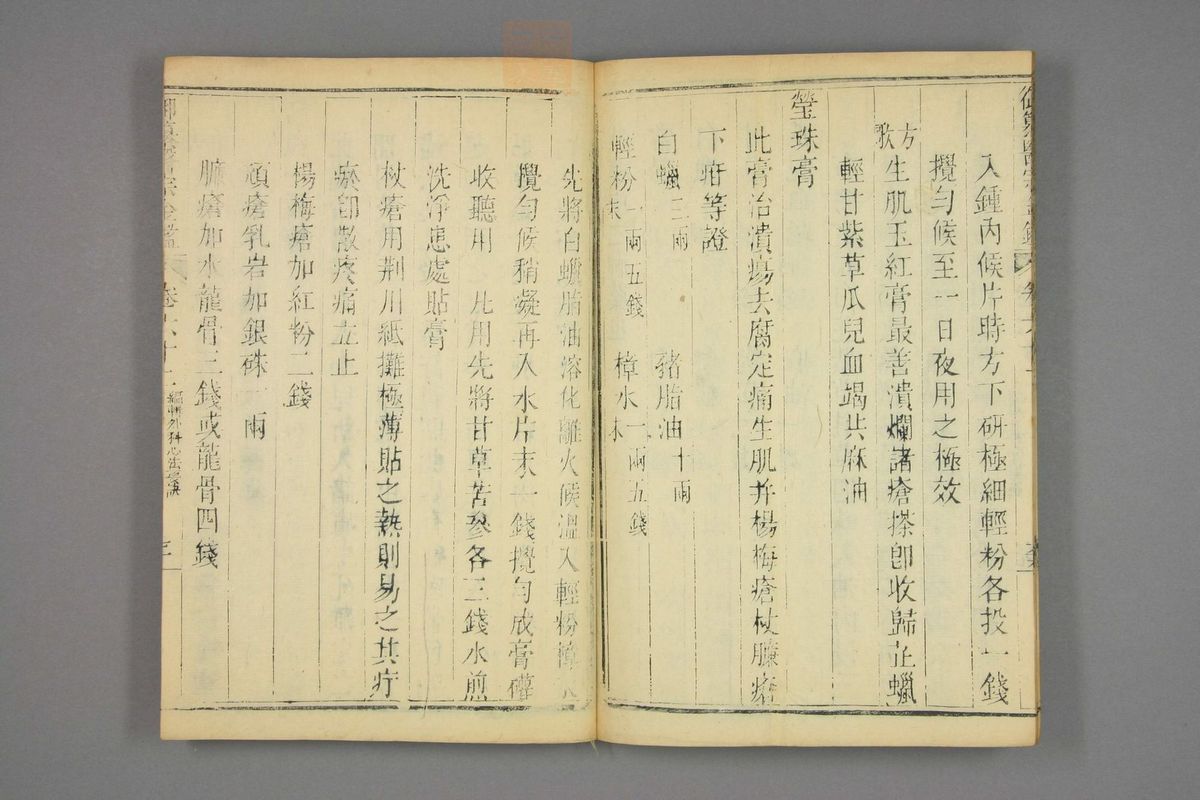 入鍾內候片時方下研極細輕粉各投一錢
攪勻候至一日夜用之極效
方歌
生肌玉紅膏最善潰爛諸瘡搽即收歸芷蠟
輕甘紫草瓜兒血竭共麻油
瑩珠膏
此膏治潰瘍去腐定痛生肌并楊梅瘡杖臁瘡
下疳等證
白蠟三兩 豬脂油十兩
輕粉末一兩五錢 樟冰末一兩五錢
先將白蠟脂油溶化離火候溫入輕粉樟冰
攪勻候稍凝再入水片末一錢攪勻成膏罐
收聽用 凡用先將甘草苦參各三錢水煎
洗淨患處貼膏
杖瘡用荆川紙攤極薄貼之熱則易之其疔
瘀即散疼痛立止
楊梅瘡加紅粉二錢
頑瘡乳岩加銀硃一兩
臁瘡加水龍骨三錢或龍骨四錢
卷六十二
編輯外科心法要訣
三